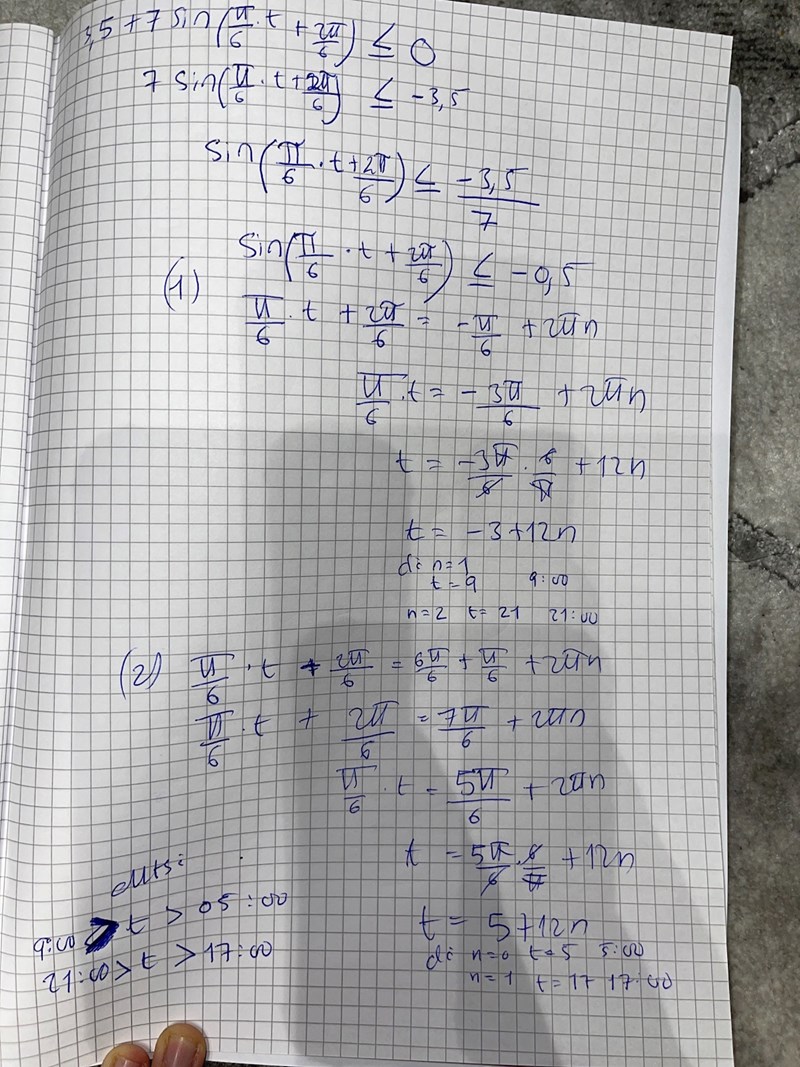 3,5 + 7 sin(π/6 · t + 2π/6) ≤ 0
7 sin(π/6 · t + 2π/6) ≤ -3,5
sin(π/6 · t + 2π/6) ≤ -3,5/7
sin(π/6 · t + 2π/6) ≤ -0,5
(1) π/6 · t + 2π/6 = -π/6 + 2πn
π/6 · t = -3π/6 + 2πn
t = -3π/6 · 6/π + 12n
t = -3 + 12n
då n=1
t=9 9:00
n=2 t=21 21:00
(2) π/6 · t + 2π/6 = 6π/6 + π/6 + 2πn
π/6 · t + 2π/6 = 7π/6 + 2πn
π/6 · t = 5π/6 + 2πn
t = 5π/6 · 6/π + 12n
t = 5+12n
då n=0 t=5 5:00
n=1 t=17 17:00
9:00 > t > 05:00
21:00 > t > 17:00